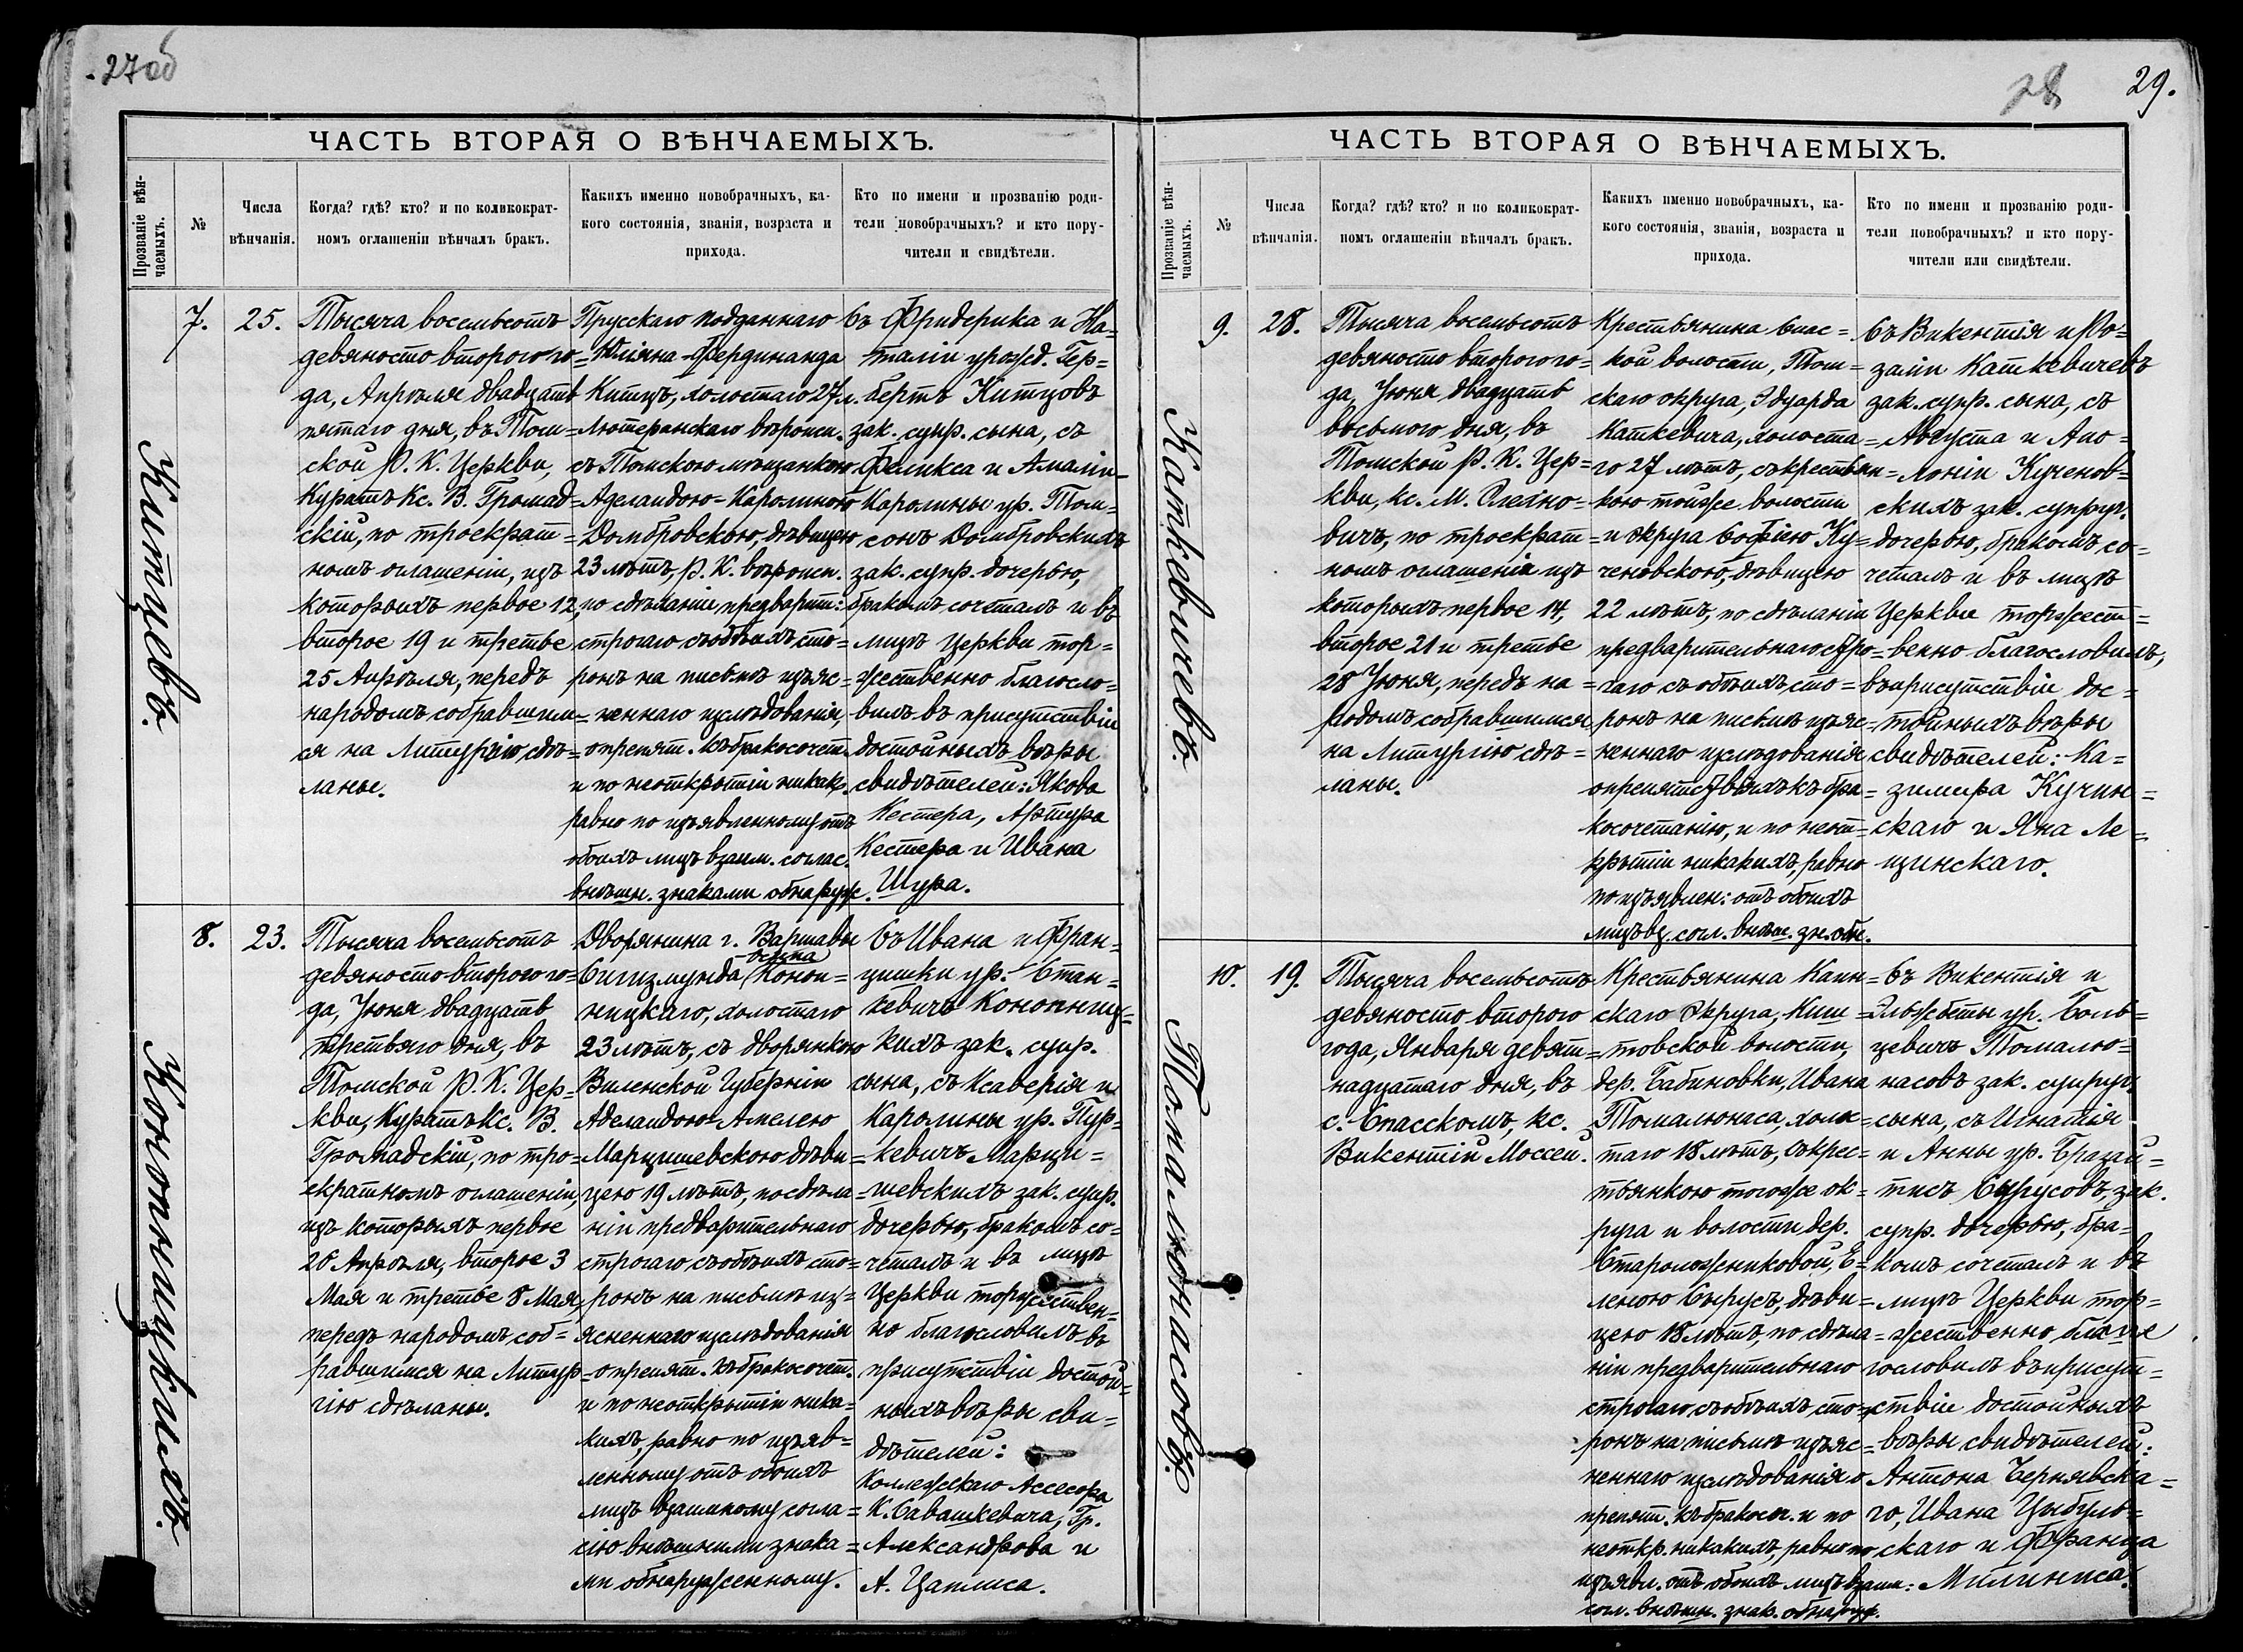 27об
ЧАСТЬ ВТОРАЯ О ВѢНЧАЕМЫХЪ.
Прозваніе вѣн-
чаемыхъ.
№
Числа
вѣнчанія.
Когда? гдѣ? кто? и по коликократ-
номъ оглашеніи вѣнчалъ бракъ.
Какихъ именно новобрачныхъ, ка-
кого состоянія, званія, возраста и
прихода.
Кто по имени и прозванію роди-
тели новобрачныхъ? и кто пору-
чители и свидѣтели.
Китцевъ.
7.
25.
Тысяча восемьсотъ
девяносто второго го=
да, Апрѣля двадцать
пятаго дня, въ Том=
ской Р. К. Церкви,
Куратъ Кс. В. Громад=
скій, по троекрат=
номъ оглашеніи, изъ
которыхъ первое 12,
второе 19 и третье
25 Апрѣля, передъ
народомъ собравшим=
ся на Литургію сдѣ=
ланы.
Прусскаго подданнаго
Юліяна-Фердинанда
Китцъ, холостаго 27 л.
Лютеранскаго вѣроисп.
съ Томскою мѣщанкою
Аделаидою-Каролиною
Домбровскою, дѣвицею
23 лѣтъ, Р. К. вѣроисп.
по сдѣланіи предварит:
строгаго съ обѣихъ сто=
ронъ на письмѣ изъяс=
неннаго изслѣдованія
о препят. къ бракосочет.
и по неоткрытіи никак.
равно по изъявленному отъ
обоихъ лицъ взаим. соглас.
внѣшн. знаками обнаруж.
Съ Фридерика и На=
таліи урожд. Гер=
бертъ Китцовъ
зак. супр. сына, съ
Феликса и Амаліи-
Каролины ур. Том=
сонъ Домбровскихъ
зак. супр. дочерью,
бракомъ сочеталъ и въ
лицѣ Церкви тор=
жественно благосло=
вилъ въ присутствіи
достойныхъ вѣры
свидѣтелей: Якова
Кестера, Артура
Кестера и Ивана
Шура.
Конопницкихъ.
8.
23.
Тысяча восемьсотъ
девяносто второго го=
да, Іюня двадцать
третьяго дня, въ
Томской Р. К. Цер=
кви, Куратъ Кс. В.
Громадскій, по тро=
екратномъ оглашеніи,
изъ которыхъ первое
26 Апрѣля, второе 3
Мая и третье 8 Мая,
передъ народомъ соб=
равшимся на Литур=
гію сдѣланы.
Дворянина г. Варшавы
Сигизмунда Конон=
ницкаго, холостаго
23 лѣтъ, съ дворянкою
Виленской Губерніи
Аделаидою-Амелею
Марцишевскою дѣви=
цею 19 лѣтъ, по сдѣла=
ніи предварительнаго
строгаго съ обѣихъ сто=
ронъ на письмѣ изъ=
ясненнаго изслѣдованія
о препят. къ бракосочет.
и по неоткрытіи ника=
кихъ, равно по изъяв=
ленному отъ обоихъ
лицъ взаимному согла=
сію внѣшними знака=
ми обнаруженному.
Съ Ивана и Фран=
цишки ур. Стан=
кевичъ Конопниц=
кихъ зак. супр.
сына, съ Ксаверія и
Каролины ур. Пур=
кевичъ Марци=
шевскихъ зак. супр.
дочерью, бракомъ со=
четалъ и въ лицѣ
Церкви торжествен=
но благословилъ въ
присутствіи достой=
ныхъ вѣры сви=
дѣтелей:
Коллежскаго Ассесора
К. Савашкевича, Гр.
Александрова и
А. Цаплиса.
28
29.
ЧАСТЬ ВТОРАЯ О ВѢНЧАЕМЫХЪ.
Прозваніе вѣн-
чаемыхъ.
№
Числа
вѣнчанія.
Когда? гдѣ? кто? и по коликократ-
номъ оглашеніи вѣнчалъ бракъ.
Какихъ именно новобрачныхъ, ка-
кого состоянія, званія, возраста и
прихода.
Кто по имени и прозванію роди-
тели новобрачныхъ? и кто пору-
чители или свидѣтели.
Каткевичевъ.
9.
28.
Тысяча восемьсотъ
девяносто второго го=
да, Іюня двадцать
восьмого дня, въ
Томской Р. К. Цер=
кви, кс. М.
вичъ, по троекрат=
номъ оглашеніи изъ
которыхъ первое 14,
второе 21 и третье
28 Іюня, передъ на=
родомъ собравшимся
на Литургію сдѣ=
ланы.
Крестьянина Спас=
кой волости, Том=
скаго округа, Эдуарда
Каткевича, холоста=
го 27 лѣтъ, съ крестьян=
кою тойже волости
и округа Софією Ку=
ченовскою, дѣвицею
22 лѣтъ, по сдѣланіи
предварительнаго стро=
гаго съ обѣихъ сто=
ронъ на письмѣ изъяс=
неннаго изслѣдованія
о препятствіяхъ къ бра=
косочетанію, и по неот=
крытіи никакихъ, равно
по изъявлен: отъ обоихъ
лицъ вз. согл. внѣш. зн. обн.
Съ Викентія и Ро=
заліи Каткевичевъ
зак. супр. сына, съ
Августа и Апо=
лоніи Кученов=
скихъ зак. супруг.
дочерью, бракомъ со=
четалъ и въ лицѣ
Церкви торжест=
венно благословилъ,
въ присутствіи дос=
тойныхъ вѣры
свидѣтелей: Ка=
зимира Кучин=
скаго и Яна Ле=
щинскаго.
Томалюнасовъ.
10.
19.
Тысяча восемьсотъ
девяносто второго
года, Января девят=
надцатаго дня, въ
с. Спасскомъ, кс.
Викентій Моссей.
Крестьянина Каин=
скаго Округа, Киш=
товской волости,
дер. Бабиновки, Ивана
Томалюнаса, холос=
таго 18 лѣтъ, съ крес=
тьянкою тогоже ок=
руга и волости дер.
Старологениковой, Е=
леною Сырусъ, дѣви=
цею 18 лѣтъ, по сдѣла=
ніи предварительнаго
строгаго съ обѣихъ сто=
ронъ на письмѣ изъяс=
неннаго изслѣдованія о
препят. къ бракосоч. и по
неоткр. никакихъ, равно по
изъявл. отъ обоихъ лицъ взаим:
согл. внѣшн. знак. обнаруж.
Съ Викентія и
Эльжбеты ур. Боль=
цевичъ Томалю=
насовъ зак. супруг.
сына, съ Игнатія
и Анны ур. Бразай=
тисъ Сырусовъ, зак.
супр. дочерью, бра=
комъ сочеталъ и въ
лицѣ Церкви тор=
жественно бла
гословилъ въ присут=
ствіи достойныхъ
вѣры свидѣтелей:
Антона Чернявска=
го, Ивана Цыбуль=
скаго и Франца
Милиниса.